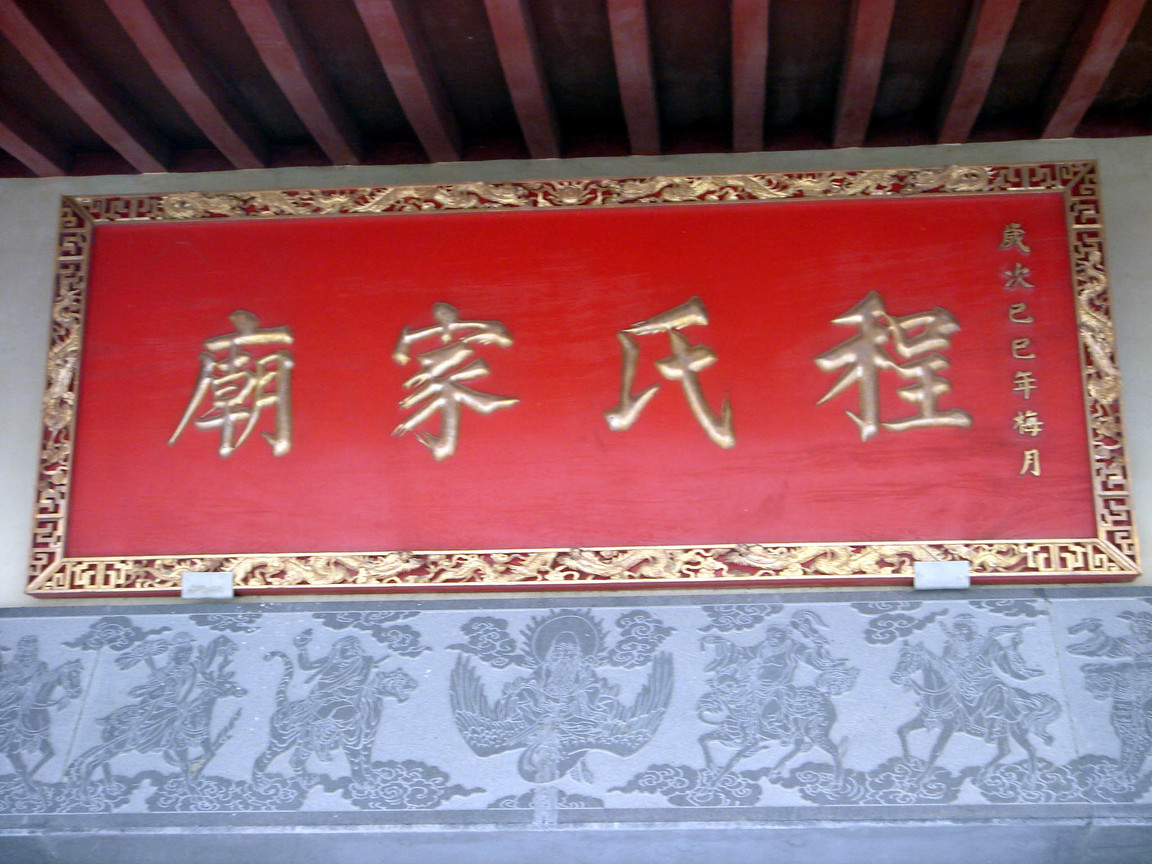 歲次己巳年梅月
程氏家廟